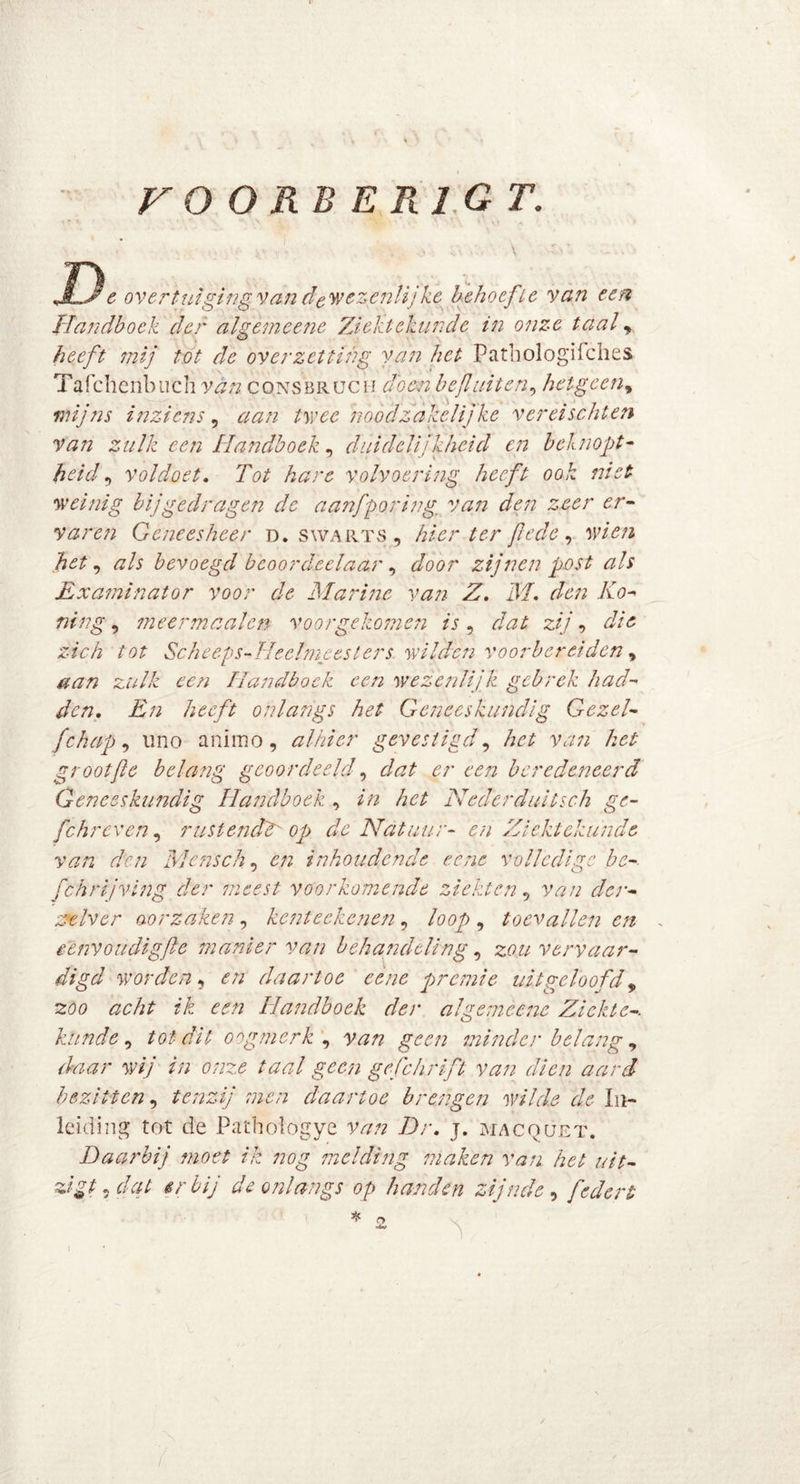 VOORBERIGT.
De overtuiging van de wezenlijke behoefte van een
Handboek der algemeene Ziektekunde in onze taal,
heeft mij tot de overzetting van het Pathologiſches
Taſchenbuch van CONSBRUCH doen beſluiten, hetgeen,
mijns inziens, aan twee noodzakelijke vereischten
van zulk een Handboek, duidelijkheid en beknopt-
heid, voldoet. Tot hare volvoering heeft ook niet
weinig bijgedragen de aanſporing van den zeer er-
varen Geneesheer D. SWARTS, hier ter ſtede, wien
het, als bevoegd beoordeelaar, door zijnen post als
Examinator voor de Marine van Z. M. den Ko-
ning, meermaalen voorgekomen is, dat zij, die
zich tot Scheeps-Heelmeesters wilden voorbereiden,
aan zulk een Handboek een wezenlijk gebrek had-
den. En heeft onlangs het Geneeskundig Gezel-
ſchap, uno animo, alhier gevestigd, het van het
grootſte belang geoordeeld, dat er een beredeneerd
Geneeskundig Handboek, in het Nederduitsch ge-
ſchreven, rustende op de Natuur- en Ziektekunde
van den Mensch, en inhoudende eene volledige be-
ſchrijving der meest voorkomende ziekten, van der-
zelver oorzaken, kenteekenen, loop, toevallen en
eenvoudigſte manier van behandeling, zou vervaar-
digd worden, en daartoe eene premie uitgeloofd,
zoo acht ik een Handboek der algemeene Ziekte-
kunde, tot dit oogmerk, van geen minder belang,
daar wij in onze taal geen geſchrift van dien aard
bezitten, tenzij men daartoe brengen wilde de In-
leiding tot de Pathologye van Dr. J. MACQUET.
Daarbij moet ik nog melding maken van het uit-
zigt, dat er bij de onlangs op handen zijnde, ſedert
* 2